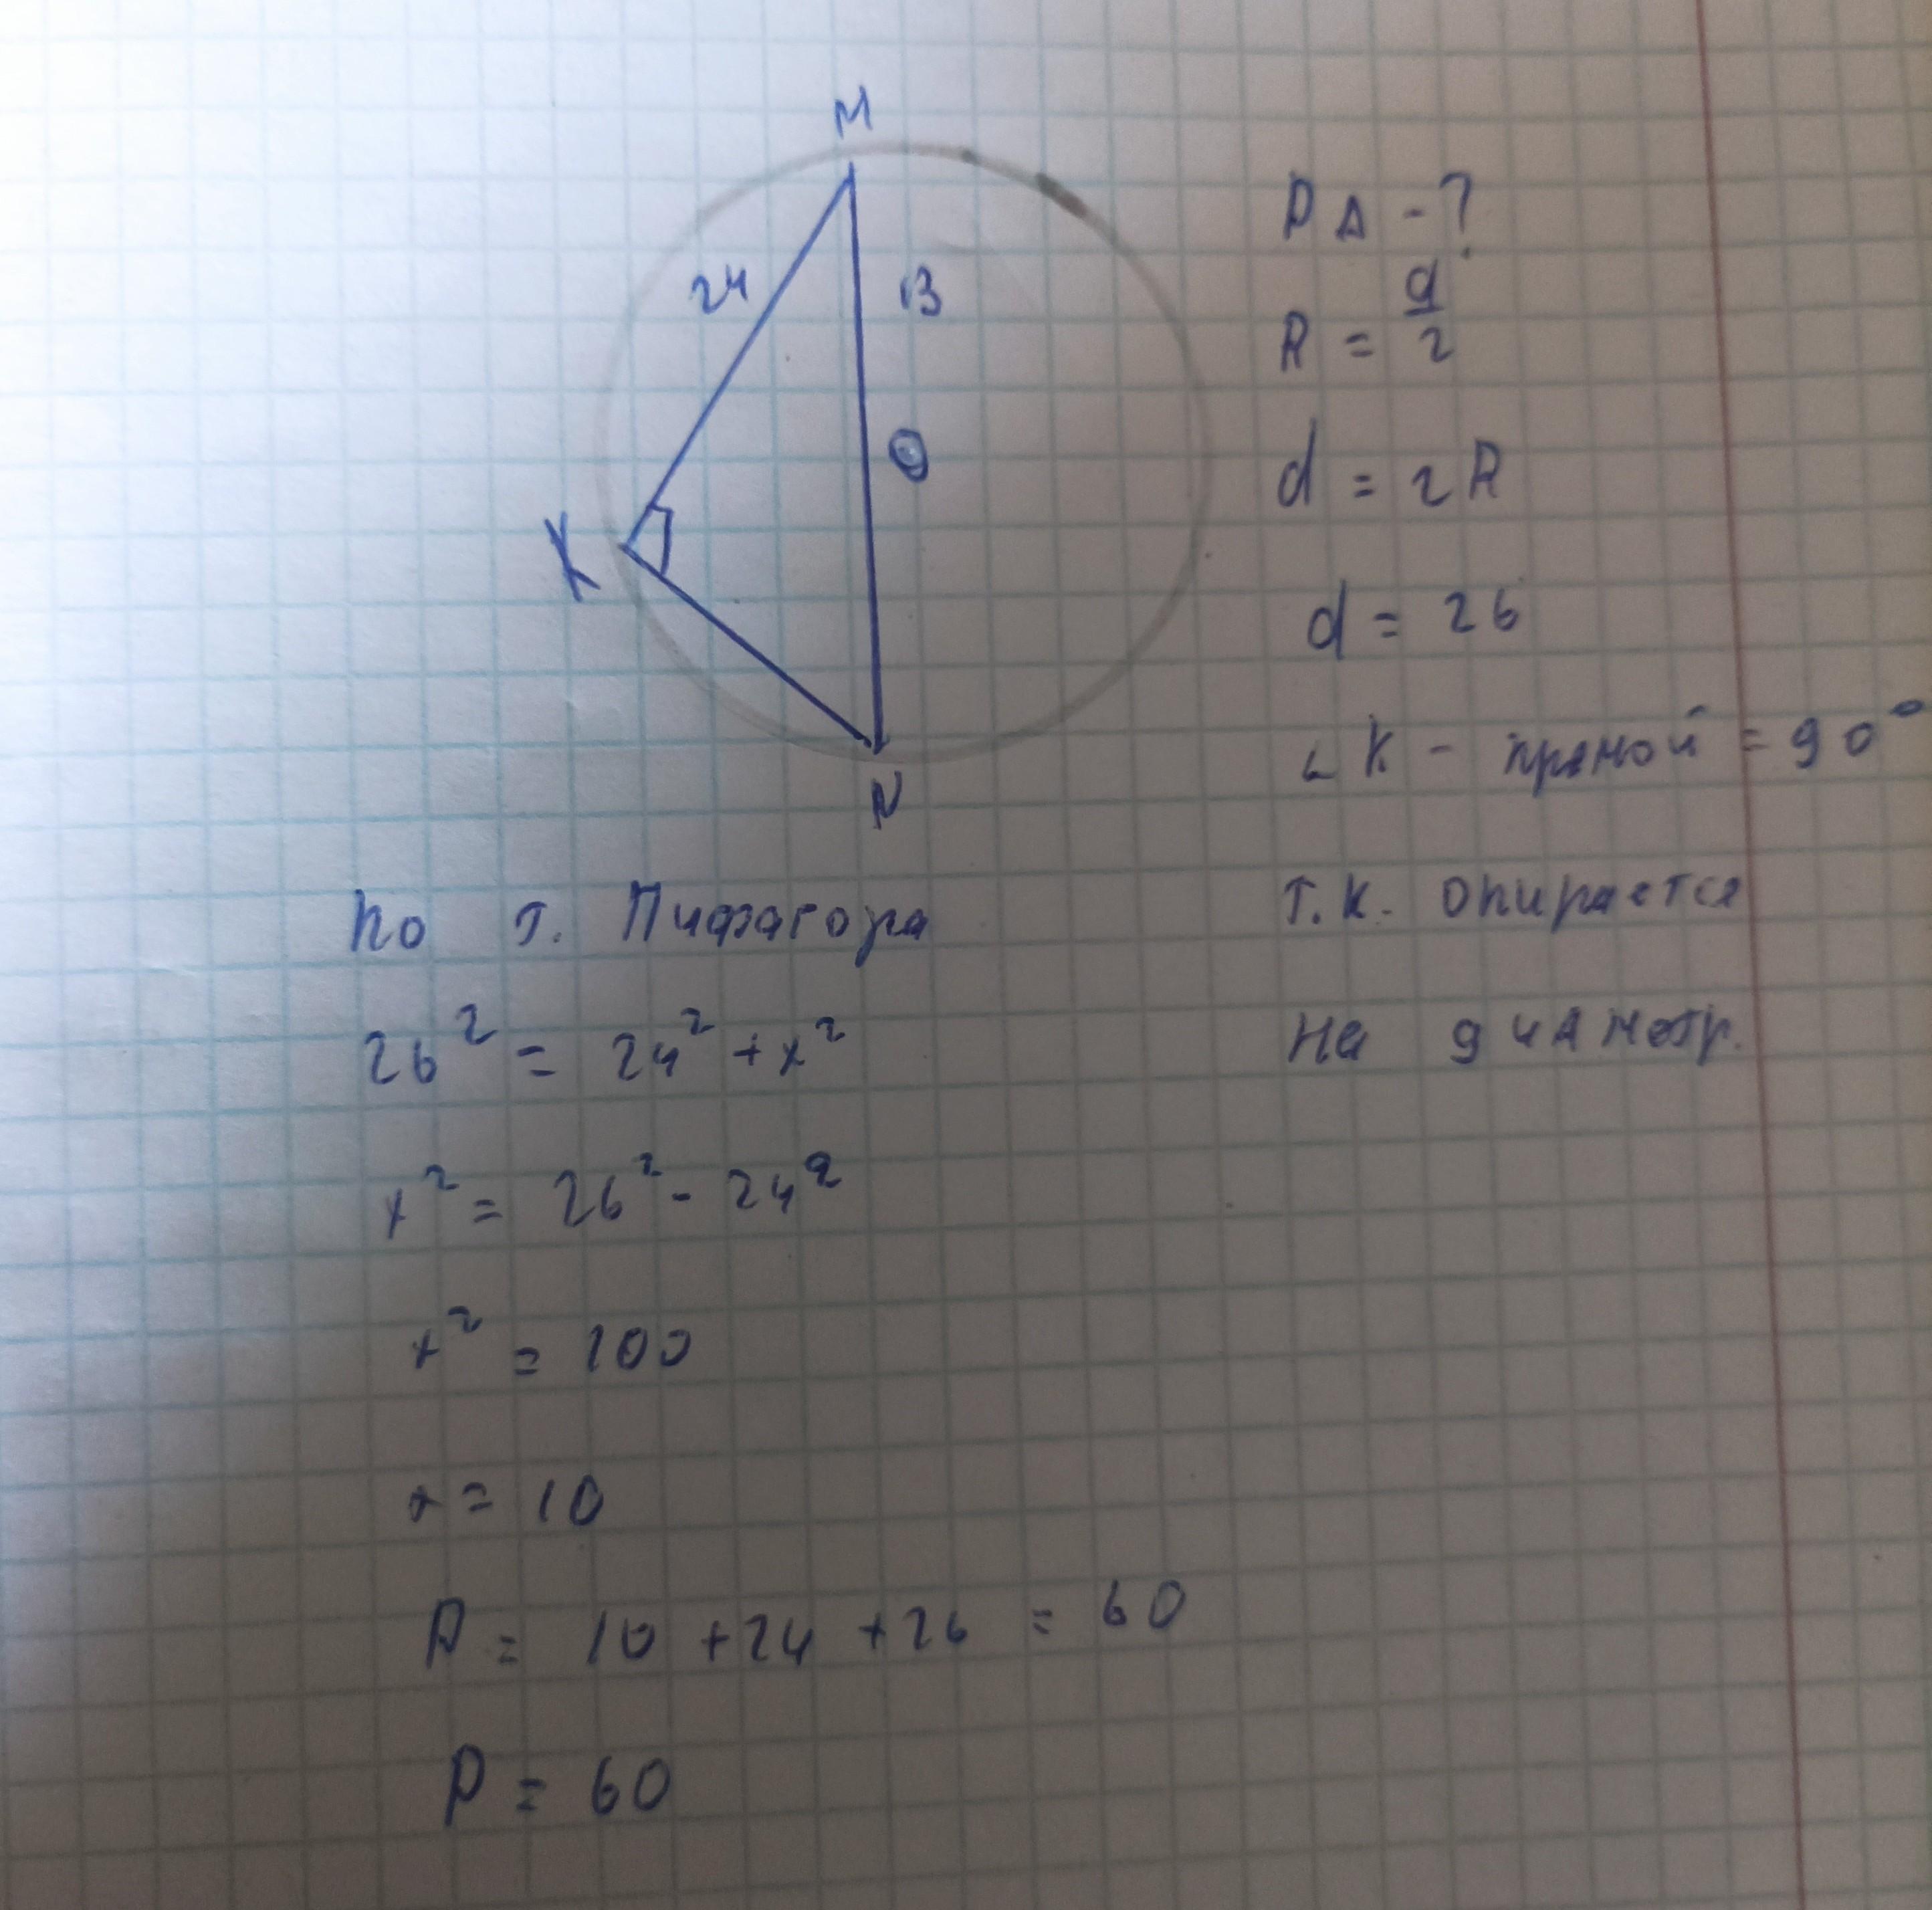 M
24
13
O
K
N
P △ - ?
R = d/2
d = 2R
d = 26
∠K - прямой = 90°
т.к. опирается
на диаметр.
по т. Пифагора
26² = 24² + x²
x² = 26² - 24²
x² = 100
x = 10
P = 10 + 24 + 26 = 60
P = 60